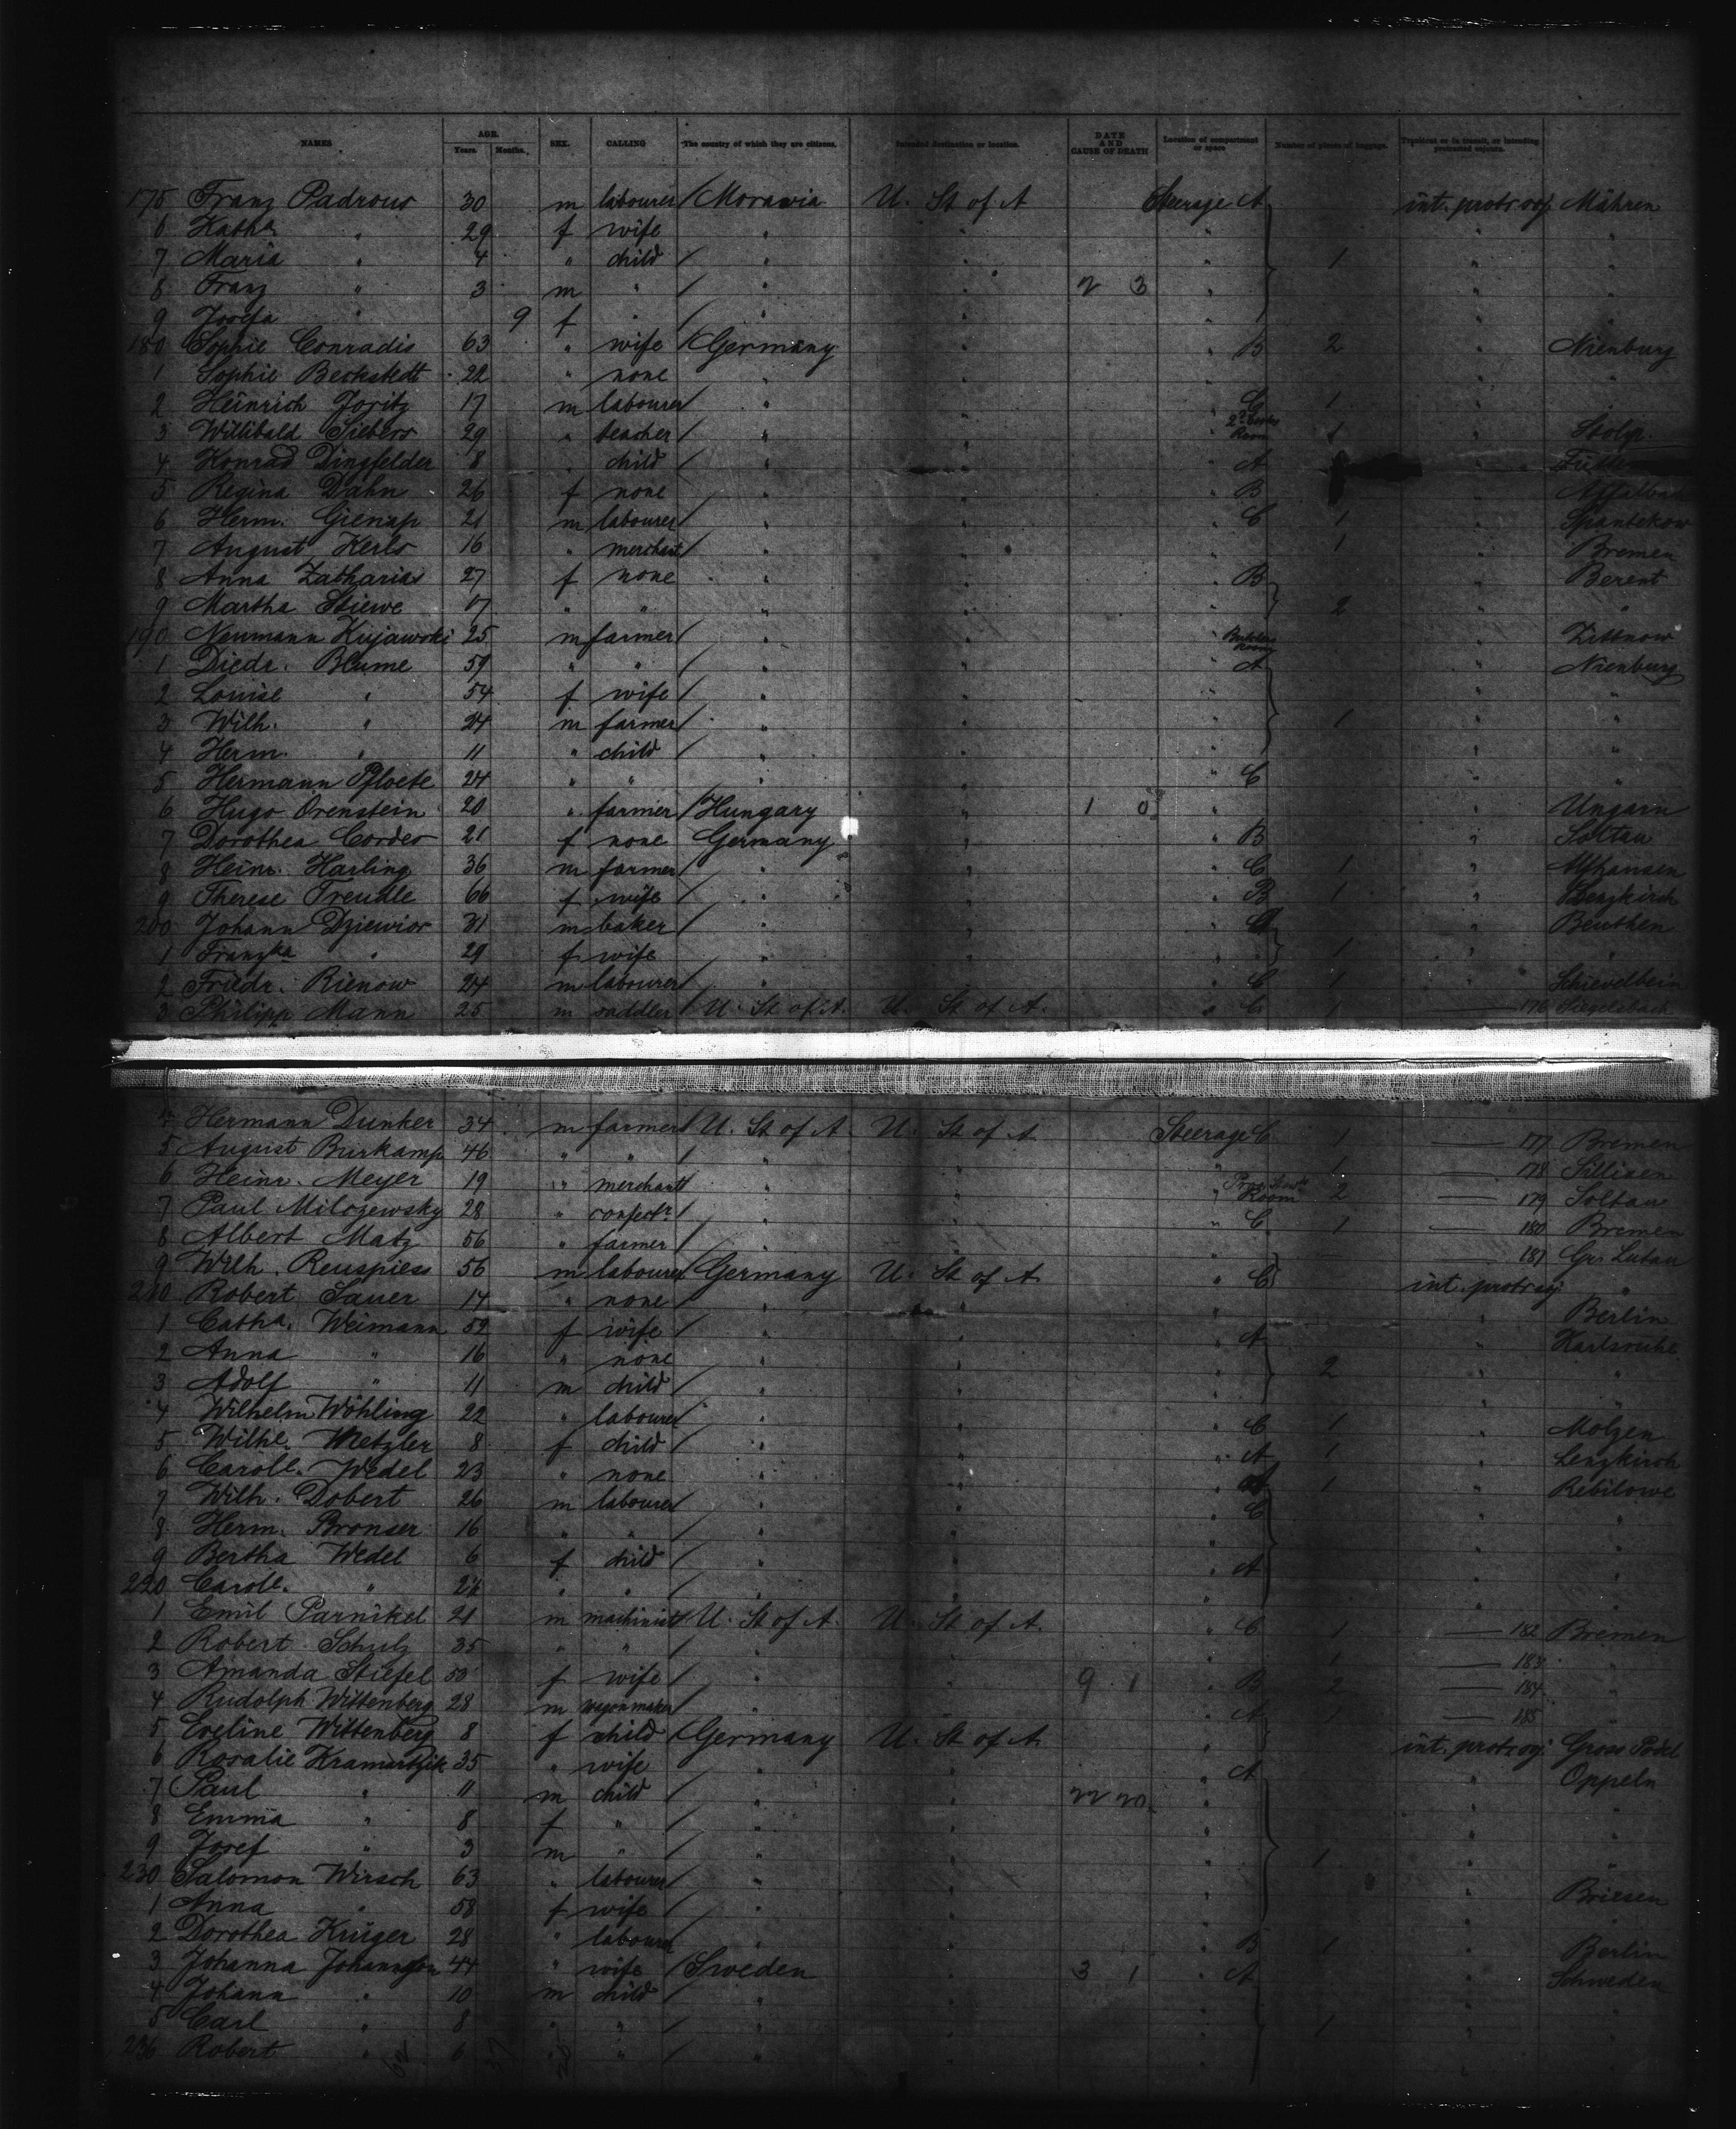 NAMES AGE. Years. Months. SEX. CALLING The country of which they are citizens. Intended destination or location. DATE AND CAUSE OF DEATH Location of compartment or space Number of pieces of baggage. Transient or in transit, or intending protracted sojourn.
175 Franz Padrous 30 m labourer / Moravia U. St of A Steerage A int. protr. soj. Mähren
6 Katha " 29 f wife " " " " "
7 Maria " 4 " child / " " " 1 " "
8 Franz " 3 m " / " " 2 3 " " "
9 Josefa " 9 f " / " " " " "
180 Sophie Conradis 63 " wife / Germany " " B 2 " Nienburg
1 Sophie Beckstedt 22 " none " " " " "
2 Heinrich Joritz 17 m labourer / " " " C 1 " "
3 Willibald Siebers 29 " teacher / " " " 2d Cooks Room 1 " Stolp
4 Konrad Dingfelder 8 " child / " " " A "
5 Regina Dahn 26 f none " " " B "
6 Herm. Gienap 21 m labourer / " " " C 1 " Spantekow
7 August Kerls 16 " merchant / " " " " 1 " Bremen
8 Anna Zacharias 27 f none " " " B " Berent
9 Martha Stiewe 17 " " " " " 2 " "
190 Neumann Kujawski 25 m farmer / " " " Butchers Room " Zittnow
1 Diedr. Blume 59 " " / " " " A " Nienburg
2 Louise " 54 f wife / " " " " "
3 Wilh. " 24 m farmer / " " " 1 " "
4 Herm. " 11 " child / " " " " "
5 Hermann Pfloete 24 " " " " " C " "
6 Hugo Orenstein 20 " farmer / Hungary " 1 0 " " Ungarn
7 Dorothea Cordes 21 f none Germany " " B " Soltau
8 Heinr. Harling 36 m farmer / " " " C 1 " Alfhausen
9 Therese Treudle 66 f wife / " " " B 1 " Lenzkirch
200 Johann Dziewior 31 m baker / " " " A " Beuthen
1 Franzka " 29 f wife " " " 1 " "
2 Friedr. Rienow 24 m labourer / " " " C 1 " Schievelbein
3 Philipp Mann 25 m saddler / U. St of A. U. St of A. " C 1 — 176 Siegelsbach
4 Hermann Dunker 34 m farmer / U. St of A U. St of A Steerage C 1 — 177 Bremen
5 August Burkamp 46 " " / " " " 1 — 178 Sillixen
6 Heinr. Meyer 19 " merchant / " " " Room 2 — 179 Soltau
7 Paul Milozewsky 28 " confectr / " " " C 1 — 180 Bremen
8 Albert Matz 56 " farmer / " " " — 181 Gr. Lutau
9 Wilh. Reuspiess 56 m labourer / Germany U. St of A " C int. protr. soj. "
210 Robert Sauer 14 " none / " " " " Berlin
1 Catha. Weimann 52 f wife / " " " A " Karlsruhe
2 Anna " 16 " none " " " 2 " "
3 Adolf " 11 m child / " " " " "
4 Wilhelm Wöhling 22 " labourer / " " " C 1 " Molzen
5 Wilhe. Metzler 8 f child / " " " A 1 " Lenzkirch
6 Caroll. Wedel 23 " none " " " A 1 " Rebilowe
7 Wilh. Dobert 26 m labourer / " " " C " "
8 Herm. Bronser 16 " " / " " " " "
9 Bertha Wedel 6 f child / " " " A " "
220 Caroll. " " " / " " " " "
1 Emil Parnikel 21 m machinist / U. St of A. U. St of A. " C 1 — 182 Bremen
2 Robert Schulz 35 " " / " " " 1 — 183 "
3 Amanda Stiefel 50 f wife / " " 9 1 " B 2 — 184 "
4 Rudolph Wittenberg 28 m wagonmaker / " " " A — 185 "
5 Eveline Wittenberg 8 f child / Germany U. St of A " int. protr. soj.
6 Rosalie Kramartzik 35 " wife " " " A " Oppeln
7 Paul " 11 m child / " " 22 20 " " "
8 Emma " 8 f " / " " " " "
9 Josef " 3 m " / " " " 1 " "
230 Salomon Wirsch 63 " labourer / " " " " Briesen
1 Anna " 58 f wife / " " " " "
2 Dorothea Krüger 28 " labourer " " " B 1 " Berlin
3 Johanna Johansson 44 " wife / Sweden " 3 1 " A " Schweden
4 Johann " 10 m child / " " " " "
5 Carl " 8 " " / " " " 1 " "
236 Robert " 6 " " / " " " " "